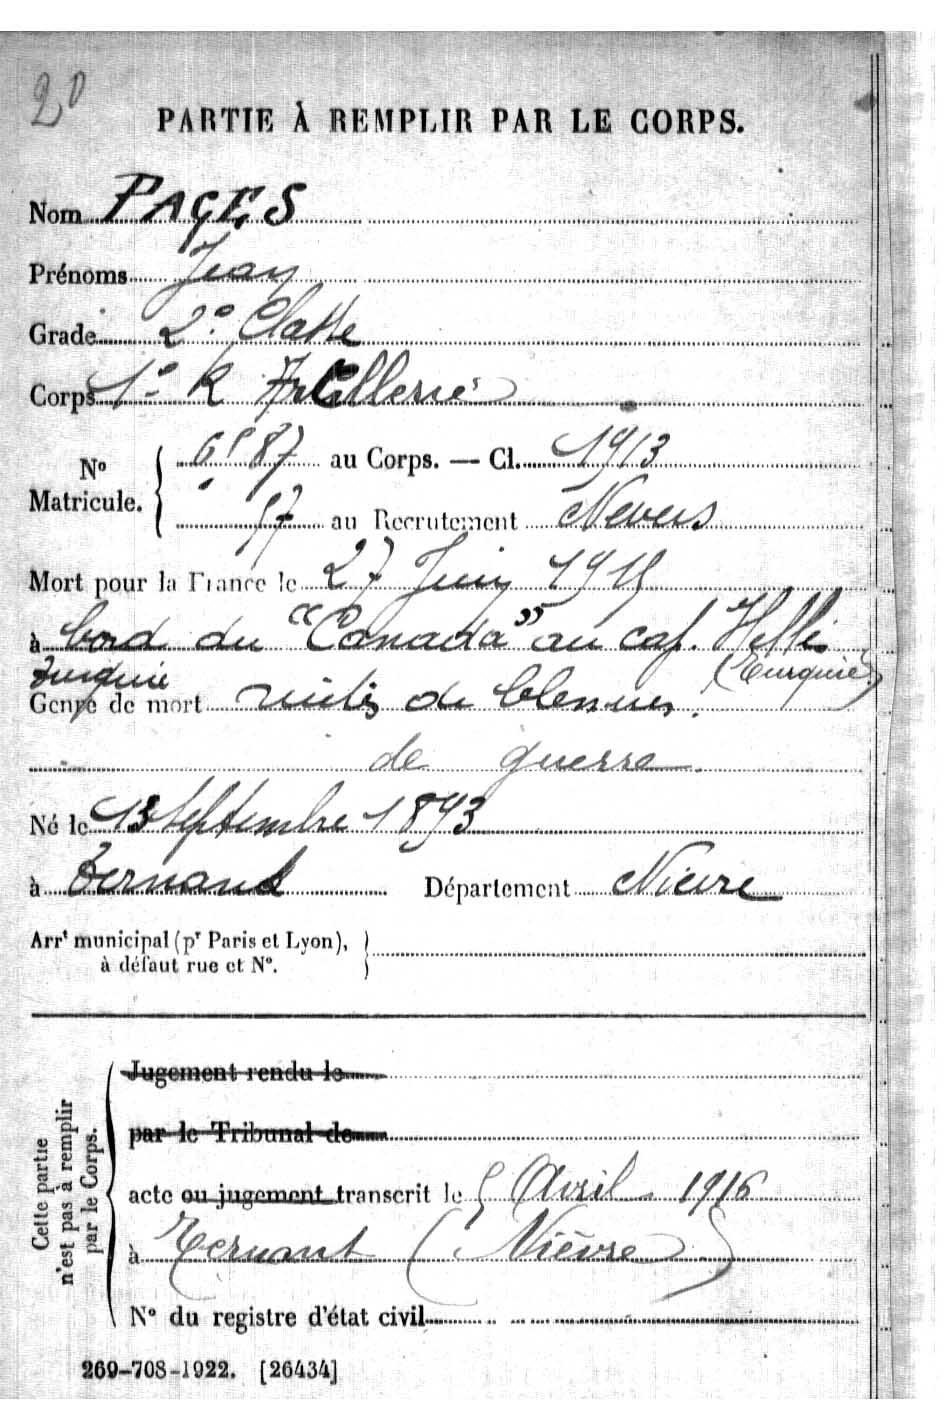 20
PARTIE À REMPLIR PAR LE CORPS.
Nom PAGES
Prénoms Jean
Grade 2e Classe
Corps 1er R Artillerie
No Matricule. 6587 au Corps. — Cl. 1913
57 au Recrutement Nevers
Mort pour la France le 27 Juin 1915
à bord du "Canada" au cap. Hellès
Turquie (Turquie)
Genre de mort suites de blessures
de guerre
Né le 13 Septembre 1893
à Ternant Département Nièvre
Arrt municipal (pr Paris et Lyon),
à défaut rue et No.
Cette partie n'est pas à remplir par le Corps.
Jugement rendu le
par le Tribunal de
acte ou jugement transcrit le 5 Avril 1916
à Ternant (Nièvre)
No du registre d'état civil
269-708-1922. [26434]